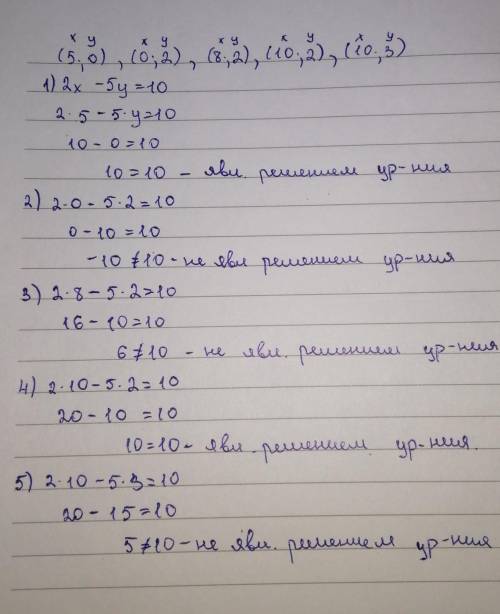 x y x y x y x y x y
(5; 0), (0; 2), (8; 2), (10; 2), (10; 3)
1) 2x - 5y = 10
2 · 5 - 5 · y = 10
10 - 0 = 10
10 = 10 - явл. решением ур-ния
2) 2·0 - 5·2 = 10
0 - 10 = 10
-10 ≠ 10 - не явл решением ур-ния
3) 2·8 - 5·2 = 10
16 - 10 = 10
6 ≠ 10 - не явл. решением ур-ния
4) 2·10 - 5·2 = 10
20 - 10 = 10
10 = 10 - явл. решением ур-ния.
5) 2·10 - 5·3 = 10
20 - 15 = 10
5 ≠ 10 - не явл. решением ур-ния